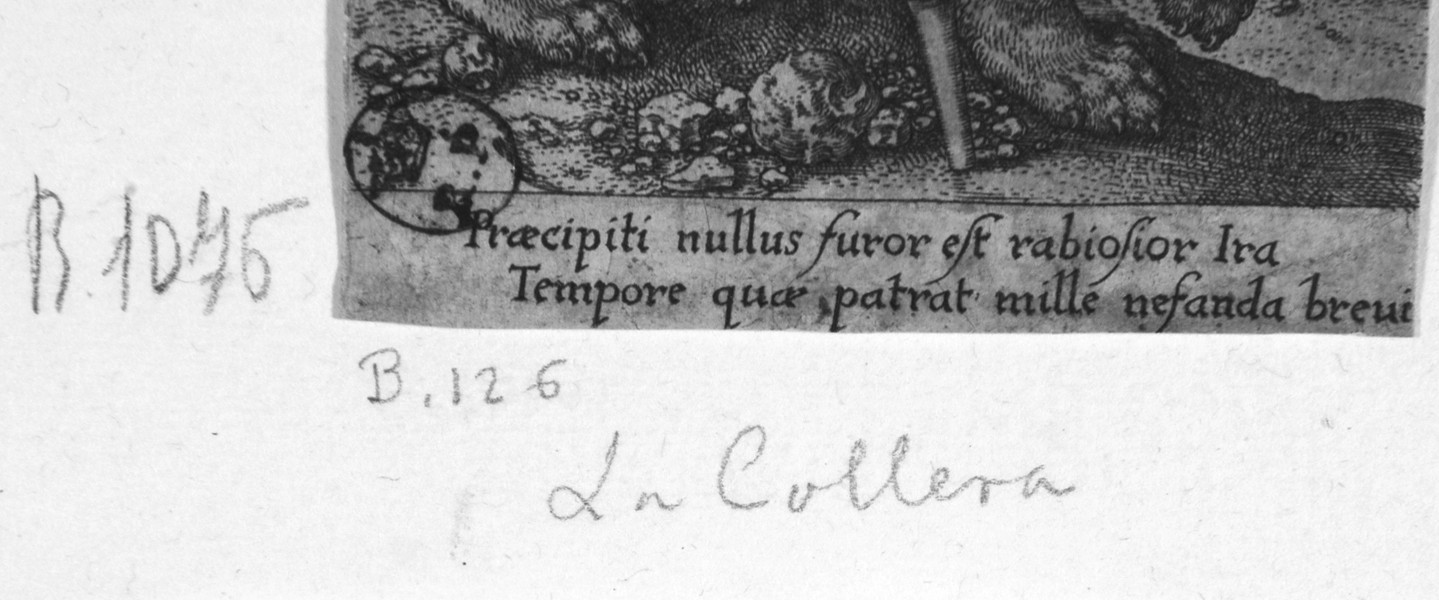 Præcipiti nullus furor eſt rabioſior Ira
Tempore quæ patrat mille nefanda breui
B.1046
B.126
La Collera